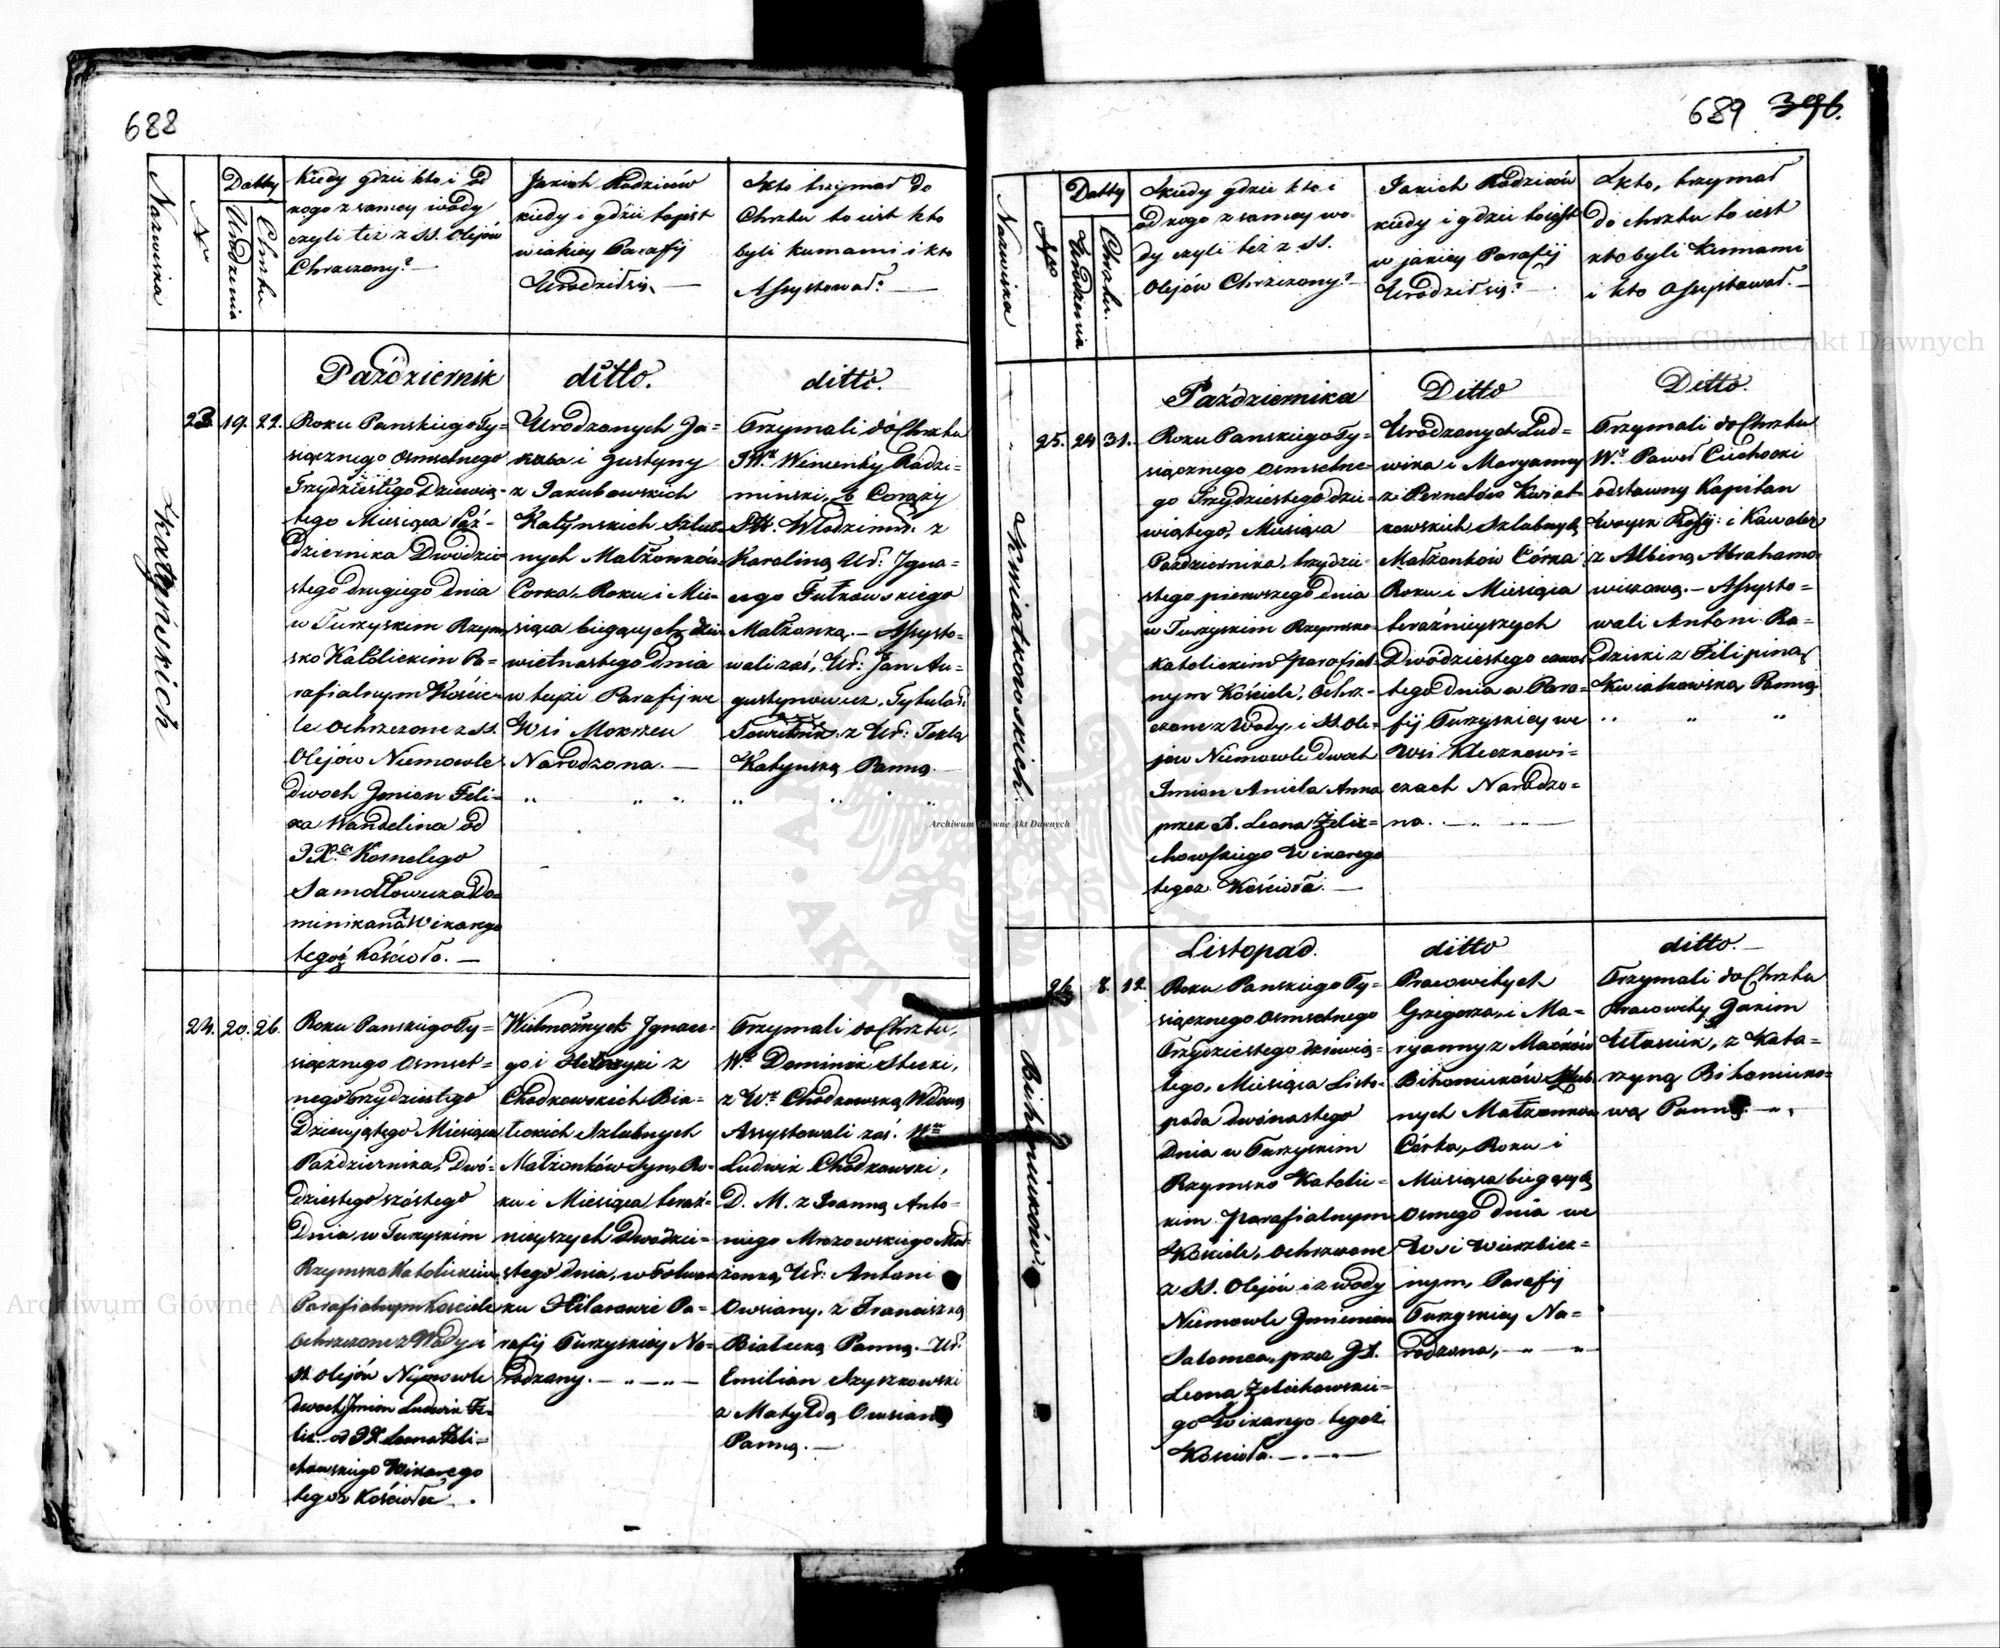 688
Nazwiska
N
Datty
Urodzenia
Chrztu
Kiedy gdzie kto i od
kogo z samey wody
czyli też z SS. Olejów
Chrzczony?
Jakich Rodziców
kiedy i gdzie
w iakiey Parafij
Urodził się.
Kto trzymał do
Chrztu to iest kto
byli kumami i kto
Assystował?
Październik
ditto.
ditto.
Katyńskich
23. 19. 22.
Roku Panskiego Ty-
siącznego Osmsetnego
Trzydziestego Dziewią-
tego Miesiąca Paź-
dziernika Dwódzie-
stego drugiego dnia
w Turzyskim Rzym-
sko Katolickim Pa-
rafialnym Koście-
le Ochrzczone z SS.
Olejów Niemowle
dwoch Jmion Feli-
xa Wandelina od
J X. Kornelego
Samotłowicza Do-
minikana Wikarego
tegoż Kościoła.
Urodzonych Ja-
kuba i Justyny
z Jakubowskich
Katyńskich Szlub-
nych Małżonków
Corka, Roku i Mie-
siąca bieżących dzie-
wietnastego Dnia
w teyże Parafij we
Wsi Mokrzcu
Narodzona.
Trzymali do Chrztu
JW. Radzi-
minski, b Corąży
Ptt. Włodzimir: z
Karoliną Ur: Jgna-
cego Fułkowskiego
Małżonką. — Assysto-
wali zaś, Ur: Jan Au-
gustynowicz, Tytular:
z Ur: Teklą
Katyńską Panną.
24. 20. 26.
Roku Panskiego Ty-
siącznego Osmset-
nego Trzydziestego
Dziewiątego Miesiąca
Października, Dwó-
dziestego szóstego
Dnia w Turzyskim
Rzymsko Katolickim
Parafialnym Kosciele
Ochrzczone z Wody i
SS. Olejów Niemowle
dwoch Jmion Ludwik Fe-
lix od JX Leona Żeli-
chowskiego Wikarego
tegoż Kościoła
Wielmożnych Jgnace-
go i z
Chodkowskich Bia-
łeckich Szlubnych
Małżonków Syn, Ro-
ku i Miesiąca teraź-
nieyszych Dwódzie-
stego dnia, w Folwar-
ku Hilarowie Pa-
rafij Turzyskiey Na-
rodzony.
Trzymali do Chrztu,
W. Dominik Stecki,
z W. Chodkowską Wdową
Assystowali zaś. W.
Ludwik Chodkowski,
D. M. z Joanną Anto-
niego Mrozowskiego Mał-
żonką, Ur: Antoni
Owsiany. z Franciszką
Białecką Panną. Ur.
Emilian Szyszkowski
z Matyldą Owsianą
Panną.
689 396.
Nazwiska
Nro
Datty
Urodzenia
Chrztu
Kiedy gdzie kto i
od kogo z samey wo-
dy czyli też z SS.
Olejów Chrzczony?
Jakich Rodziców
kiedy i gdzie
w jakiey Parafij
Urodził się?
Kto, trzymał
do chrztu to iest
kto byli Kumami
i kto Assystował.
Października
Ditto
Ditto.
Kwiatkowskich.
25. 24 31.
Roku Panskiego Ty-
siącznego Osmsetne-
go Trzydziestego dzie-
wiątego, Miesiąca
Października, trzydzie-
stego pierwszego dnia
w Turzyskim Rzymsko-
katolickim parafial-
nym Kościele, Ochrz-
czone z Wody, i SS. Ole-
jow Niemowle dwoch
Imion Aniela Anna
przez X. Leona Żelie-
chowskiego Wikarego
tegoz Kościoła.
Urodzonych Lud-
wika i Maryanny
z Kwiat-
kowskich Szlubnych
Małżonków Córka
Roku i Miesiąca
teraźnieyszych
Dwódziestego czwar-
tego dnia w Para-
fij Turzyskiey we
Wsi Kleczkowi-
czach Narodzo-
na.
Trzymali do Chrztu
W. Paweł Cuchocki
odstawny Kapitan
Woysk Rossij: i Kawaler
z Albiną Abrahamo-
wiczową. — Assysto-
wali Antoni Ra-
dzicki z Filipiną
Kwiatkowską Panną.
Listopad.
ditto
ditto.
Bihoniuków.
26. 8. 12.
Roku Panskiego Ty-
siącznego Osmsetnego
Trzydziestego dziewią-
tego, Miesiąca Listo-
pada dwónastego
Dnia w Turzyskim
Rzymsko Katolic-
kim parafialnym
Kościele, Ochrzczone
z SS. Olejów i z wody
Niemowle Jmieniem
Salomea, przez JX.
Leona Żelichowskie-
go Wikarego tegoż
Kościoła.
Pracowitych
Grzegorza, i Ma-
ryanny z
Bihoniuków Szlub-
nych Małżonków
Córka, Roku i
Miesiąca bieżących
Osmego dnia we
Wsi Wierzbicz-
nym, Parafij
Turzyskiey Na-
rodzona,
Trzymali do Chrztu
Pracowity
z Kata-
rzyną Bihoniuko-
wą Panną.
Archiwum Główne Akt Dawnych
Archiwum Główne Akt Dawnych